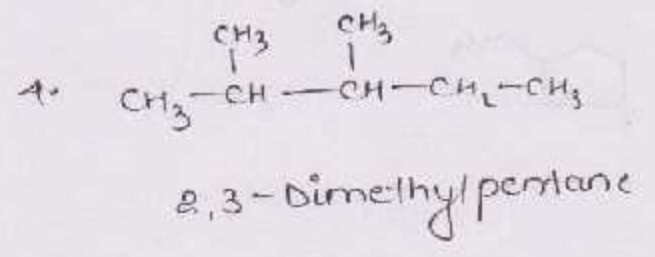 CH3 CH3
4. CH3-CH-CH-CH2-CH3
2,3-Dimethylpentane